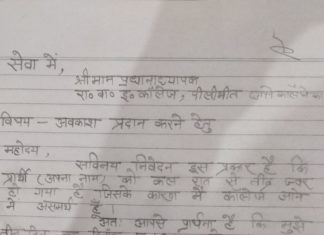 सेवा में,
श्रीमान प्रधानाध्यापक
रा० बा० इ० कॉलेज, पीलीभीत
विषय - अवकाश प्रदान करने हेतु
महोदय,
सविनय निवेदन इस प्रकार है कि
प्रार्थी (अपना नाम) को कल रात से तीव्र ज्वर
हो गया है जिसके कारण में कॉलेज आने
में असमर्थ है।
अतः आपसे प्रार्थना है कि मुझे